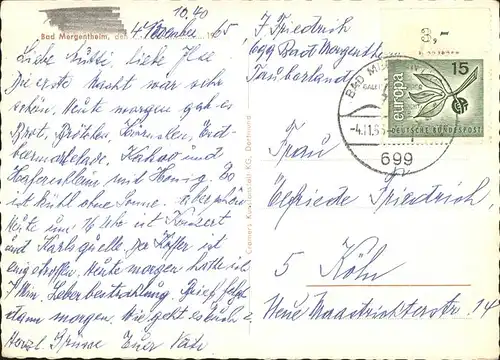 10.40
Bad Mergentheim, den 4. November 65
Liebe Mutti, liebe Ilse
Die erste Nacht war sehr
schön. Heute morgen gab es
Brot, Brötchen, Krümler, Erd-
beermarkelade, Kakao und
Haferschleim mit Honig. Es
ist kühl ohne Sonne. aber schön
Heute um 16 Uhr ist Konzert
und Karlsquelle. Der Koffer ist
eingetroffen. Heute morgen hatte ich
7 Min. Leberbestrahlung. Brief folgt
dann morgen. Wie geht es Euch?
Herzl. Grüsse Euer
Cramers Kunstanstalt KG, Dortmund
F. Friedrich
699 Bad Mergentheim
Tauberland
8,-
BAD MERGENTHEIM
-4.11.65
699
europa
15
DEUTSCHE BUNDESPOST
Frau
Elfriede Friedrich
5 Köln
Neue Maastrichterstr. 14